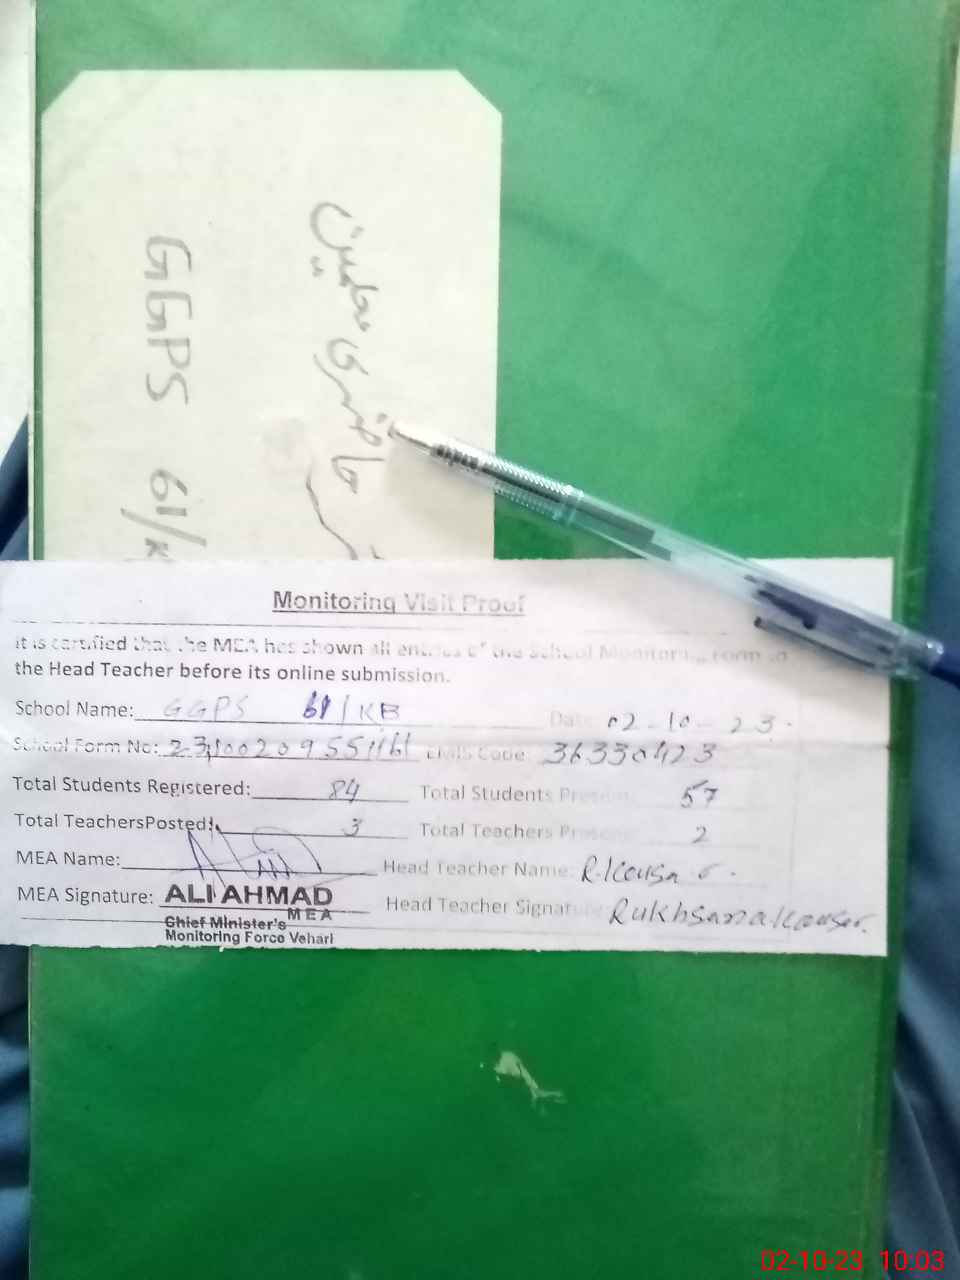 حاضری معلمین
GGPS 61/K
Monitoring Visit Proof
It is certified that the MEA has shown all entries of the School Monitoring Form to
the Head Teacher before its online submission.
School Name: GGPS 61/KB Date: 02-10-23.
School Form No: EMIS Code: 36330423
Total Students Registered: 84 Total Students Present: 57
Total TeachersPosted: 3 Total Teachers Present: 2
MEA Name: Head Teacher Name: R.Kousar.
MEA Signature: ALI AHMAD Head Teacher Signature: Rukhsana Kouser.
MEA
Chief Minister's
Monitoring Force Vehari
02-10-23 10:03